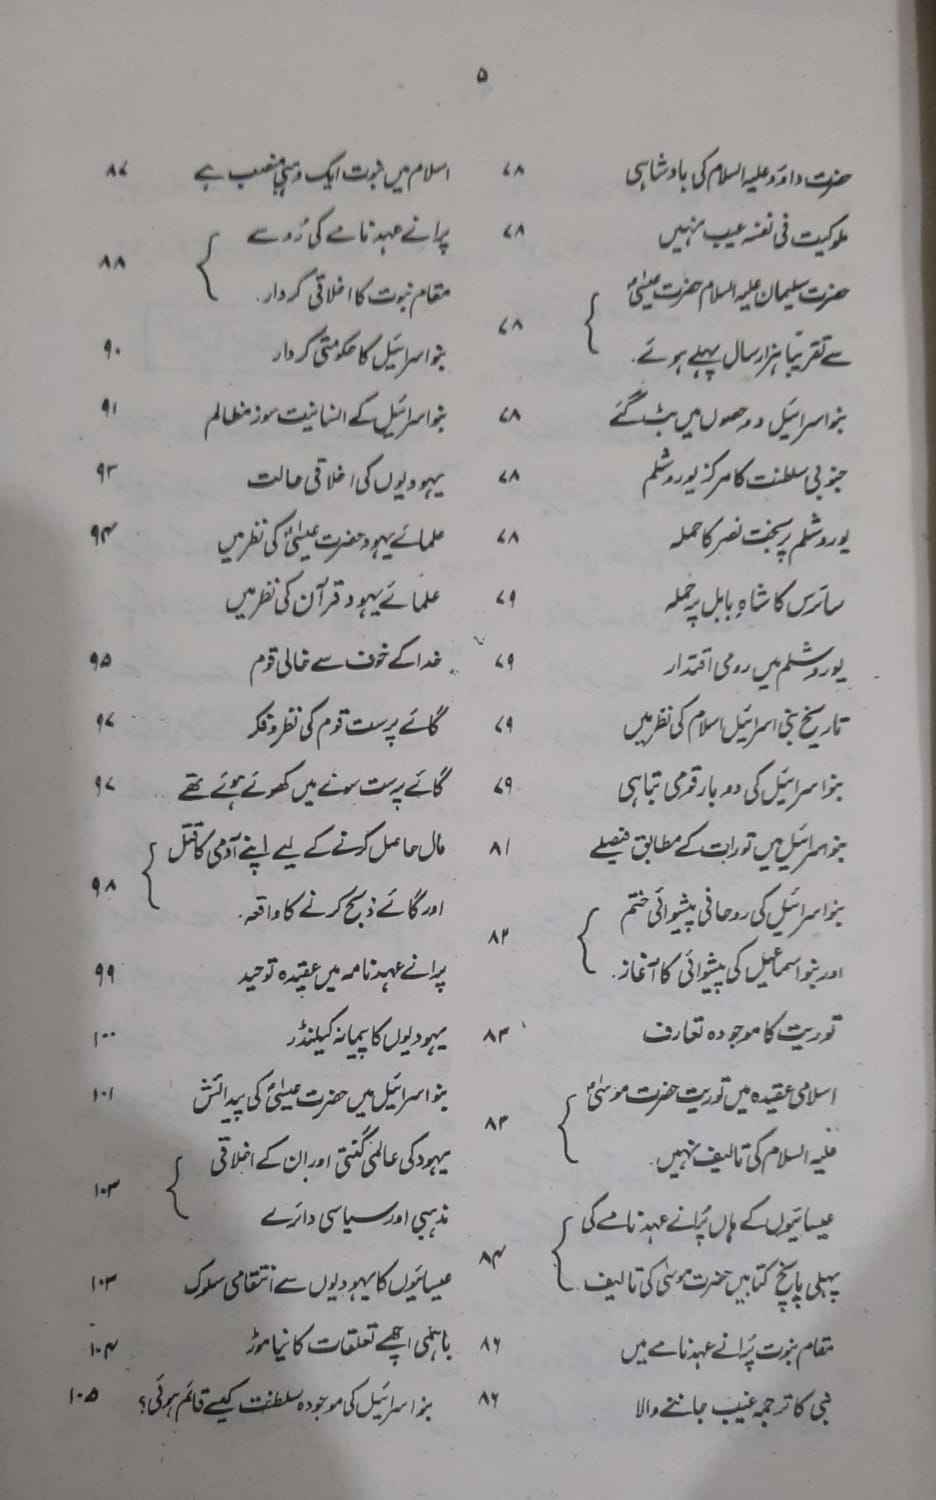 ۵
حضرت داؤد علیہ السلام کی بادشاہی ۷۸
ملوکیت فی نفسہ عیب نہیں ۷۸
حضرت سلیمان علیہ السلام حضرت عیسیٰؑ
سے تقریباً ہزار سال پہلے ہوئے۔ ۷۸
بنو اسرائیل دو حصوں میں بٹ گئے ۷۸
جنوبی سلطنت کا مرکز یوروشلم ۷۸
یوروشلم پر بخت نصر کا حملہ ۷۸
سائرس کا شاہِ بابل پر حملہ ۷۹
یوروشلم میں رومی اقتدار ۷۹
تاریخ بنی اسرائیل اسلام کی نظر میں ۷۹
بنو اسرائیل کی دو بار قومی تباہی ۷۹
بنو اسرائیل میں تورات کے مطابق فیصلے ۸۱
بنو اسرائیل کی روحانی پیشوائی ختم
اور بنو اسماعیل کی پیشوائی کا آغاز۔ ۸۲
توریت کا موجودہ تعارف ۸۳
اسلامی عقیدہ میں توریت حضرت موسیٰؑ
علیہ السلام کی تالیف نہیں۔ ۸۳
عیسائیوں کے ہاں پُرانے عہد نامے کی
پہلی پانچ کتابیں حضرت موسیٰ کی تالیف۔ ۸۴
مقام نبوت پُرانے عہد نامے میں ۸۶
نبی کا ترجمہ غیب جاننے والا ۸۶
اسلام میں نبوت ایک وہبی منصب ہے ۸۷
پرانے عہد نامے کی رُو سے
مقام نبوت کا اخلاقی کردار۔ ۸۸
بنو اسرائیل کا حکومتی کردار ۹۰
بنو اسرائیل کے انسانیت سوز مظالم ۹۱
یہودیوں کی اخلاقی حالت ۹۳
علمائے یہود حضرت عیسیٰؑ کی نظر میں ۹۴
علمائے یہود قرآن کی نظر میں
خدا کے خوف سے خالی قوم ۹۵
گائے پرست قوم کی نظر و فکر ۹۷
گائے پرست سونے میں کھوئے ہوئے تھے ۹۷
مال حاصل کرنے کے لیے اپنے آدمی کا قتل
اور گائے ذبح کرنے کا واقعہ۔ ۹۸
پرانے عہد نامہ میں عقیدہ توحید ۹۹
یہودیوں کا پیمانہ کیلنڈر ۱۰۰
بنو اسرائیل میں حضرت عیسیٰؑ کی پیدائش ۱۰۱
یہود کی عالمی گنتی اور ان کے اخلاقی
مذہبی اور سیاسی دائرے ۱۰۳
عیسائیوں کا یہودیوں سے انتقامی سلوک ۱۰۳
باہمی اچھے تعلقات کا نیا موڑ ۱۰۴
بنو اسرائیل کی موجودہ سلطنت کیسے قائم ہوئی؟ ۱۰۵